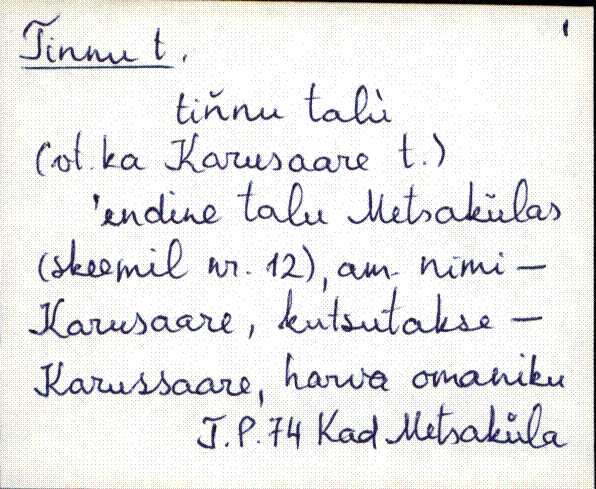 Tinnu t. 1
tiňnu talù
(vt. ka Karusaare t.)
'endine talu Metsakülas
(skeemil nr. 12), am. nimi –
Karusaare, kutsutakse –
Karussaare, harva omaniku
T.P. 74 Kad Metsaküla